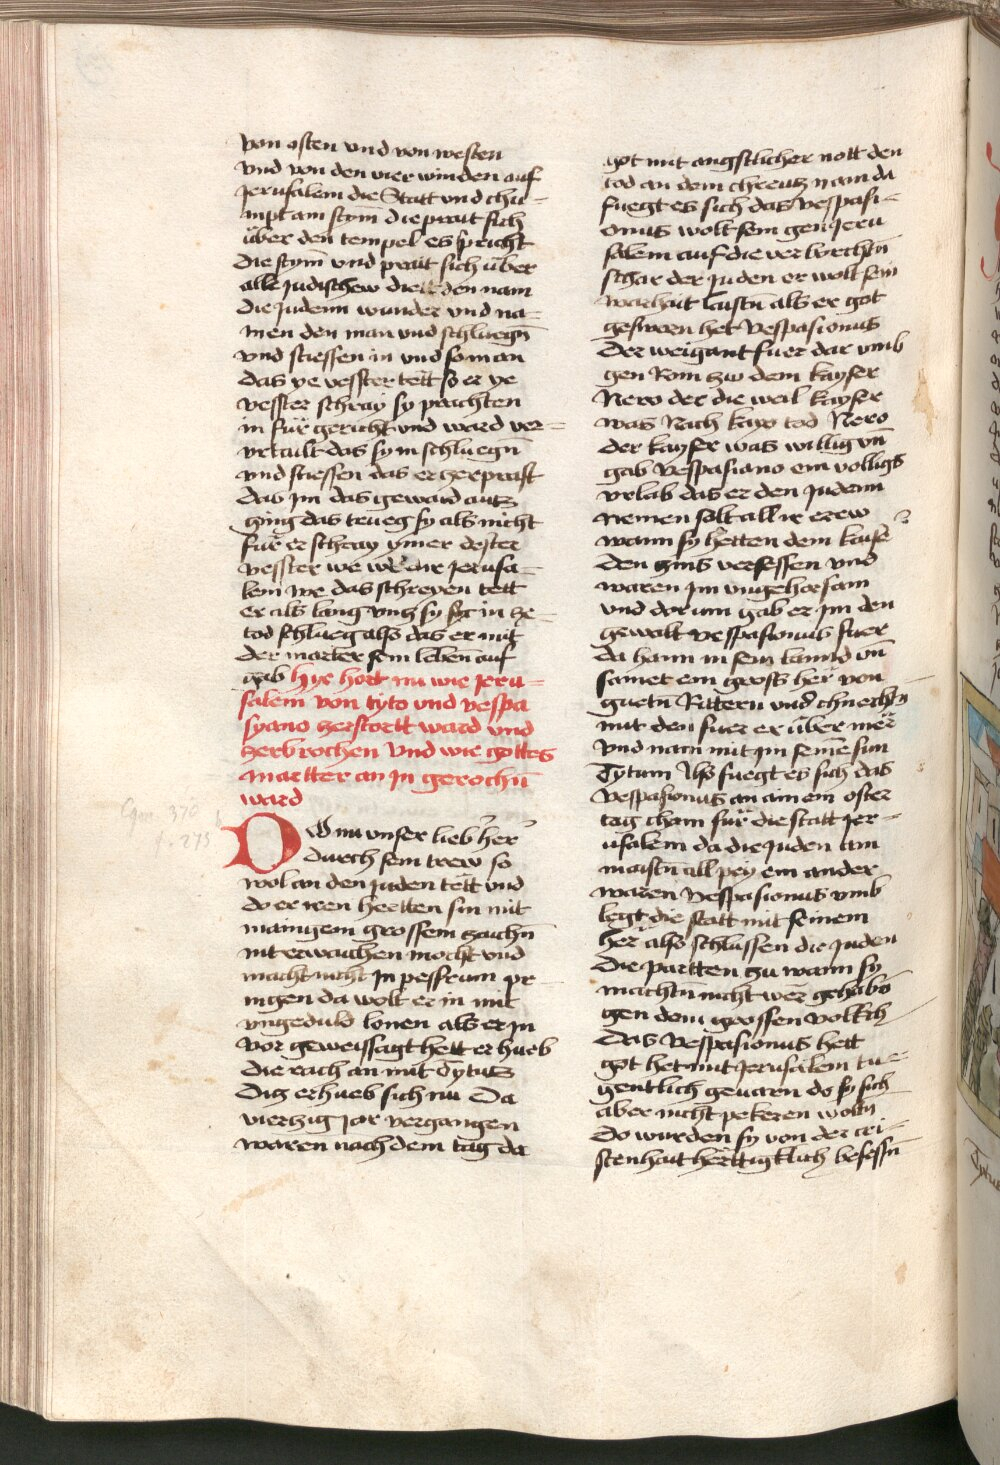 von osten vnd von westen
vnd von den vier winden auf
Jerusalem die Statt vnd chu-
mpt am stym̄ die prait sich
über den tempel es spricht
die stym̄ vnd prait sich über
alle Judischew diett den nam
die Judenn wunder vnd na-
men den man vnd schluegn̄
vnd stiessen in vnd so man
das ye vesster tett so er ye
vesster schray sy prachten
in für gericht vnd ward ver-
vrtailt das sy in schluegn̄
vnd stiessen das er zeprast
das im das gewand auß
ging das trueg sy als nicht
für er schray ymer dester
vesster we we dir Jerusa-
lem we das schreyen tett
er als lang vntz sy in ze-
tod schlueg also das er mit
der marter sein leben auf
gab hye hort nu wie Jeru-
salem von tyto vnd vespa
syano zerstortt ward vnd
zerbrochen vnd wie gottes
martter an in gerochn̄
ward
Do nu vnser lieber her
durch sein trew so
wol an den Juden tett vnd
do er iren hertten sin mit
mainigem grossem zaichn̄
nit erwaichen mocht vnd
macht nicht in pessrum pr-
ingen da wolt er in mit
vngeduld lonen als er in
vor geweissagt hett er hueb
die rach an mit Tytus
Diz erhueb sich nu Da
vierzig Jar vergangen
waren nach dem tag da
got mit angstlicher nott den
tod an dem chreutz nam da
fuegt es sich das vespasi-
onus wolt sein gen Jeru
salem auf die verworchtn̄
schar der Juden er wolt sein
warhait laistn̄ als er got
gesworn het Vespasionus
der weigant fuer dar vmb
gen Rom zw dem kayser
Nero der die weil kayser
was Nach kayo tod Nero
der kayser was willig vn̄
gab Vespasiano ein volligs
vrlab das er den Judenn
nemen solt all ir erew
wann sy hetten dem kaiser
den zins versessen vnd
waren im vngehorsam
vnd dorum gab er im den
gewalt vespasionus fuer
da haim in sein lannd vn̄
samet ein gross her von
guetn̄ Rittern vnd chnechtn̄
mit den fuer er über mer
vnd nam mit im seinē sun
Tytum Also fuegt es sich das
Vespasionus an ainem oster
tag cham für die statt Jer-
usalem da die Juden am
maistn̄ all pey ein ander
waren Vespasionus vmb
legt die statt mit seinem
her also schlussen die Juden
die partten zu wann sy
machtn̄ nicht wer gehabn̄
gen dem grossen volkch
Das Vespasionus hett
got het mit Jerusalem tu-
gentlich geuaren do sy sich
aber nicht pekeren woltn̄
Do wurden sy von der cri-
stenhait herttigklich besessn̄